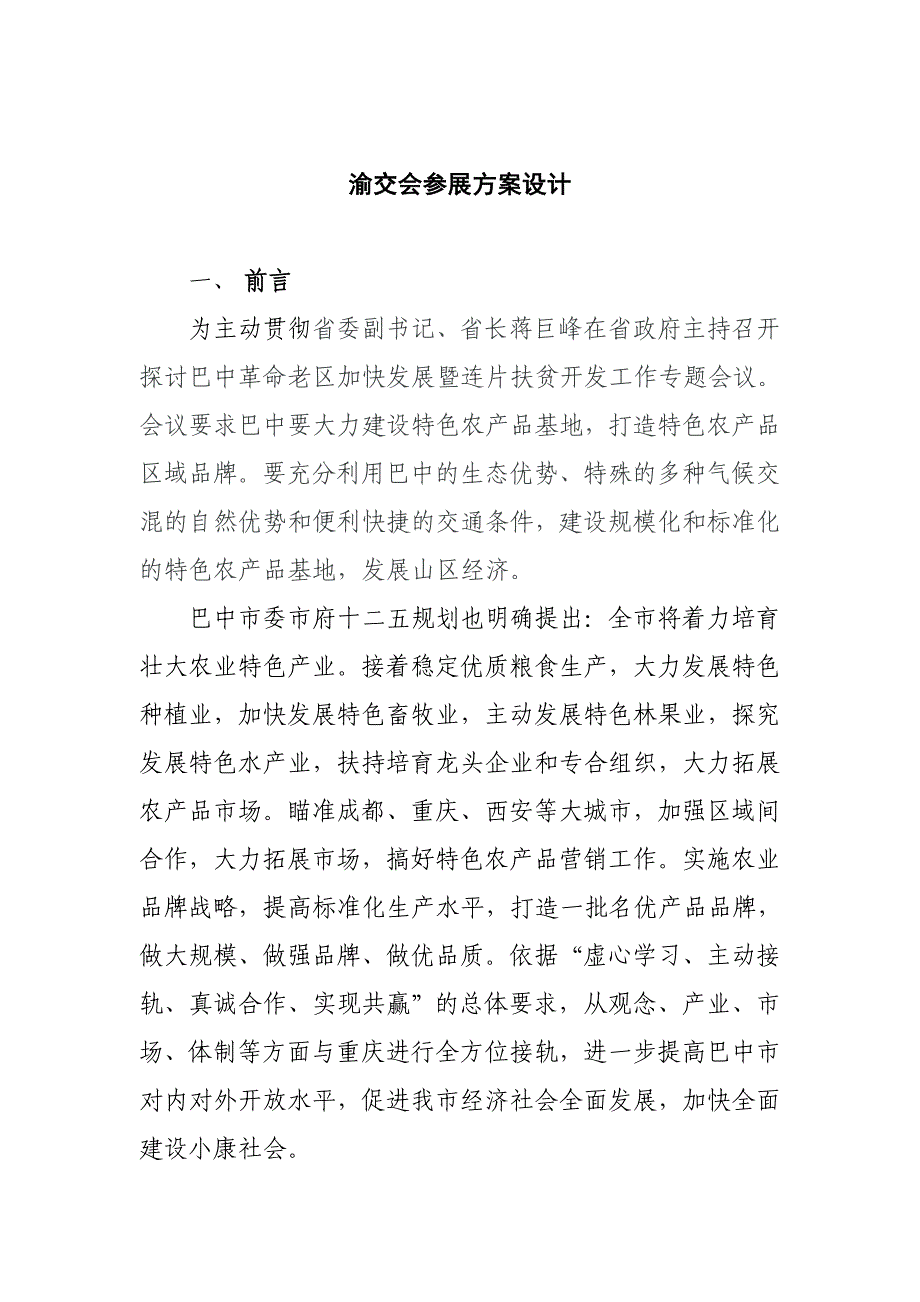 渝交会参展方案设计
一、 前言
为主动贯彻省委副书记、省长蒋巨峰在省政府主持召开
探讨巴中革命老区加快发展暨连片扶贫开发工作专题会议。
会议要求巴中要大力建设特色农产品基地，打造特色农产品
区域品牌。要充分利用巴中的生态优势、特殊的多种气候交
混的自然优势和便利快捷的交通条件，建设规模化和标准化
的特色农产品基地，发展山区经济。
巴中市委市府十二五规划也明确提出：全市将着力培育
壮大农业特色产业。接着稳定优质粮食生产，大力发展特色
种植业，加快发展特色畜牧业，主动发展特色林果业，探究
发展特色水产业，扶持培育龙头企业和专合组织，大力拓展
农产品市场。瞄准成都、重庆、西安等大城市，加强区域间
合作，大力拓展市场，搞好特色农产品营销工作。实施农业
品牌战略，提高标准化生产水平，打造一批名优产品品牌，
做大规模、做强品牌、做优品质。依据“虚心学习、主动接
轨、真诚合作、实现共赢”的总体要求，从观念、产业、市
场、体制等方面与重庆进行全方位接轨，进一步提高巴中市
对内对外开放水平，促进我市经济社会全面发展，加快全面
建设小康社会。